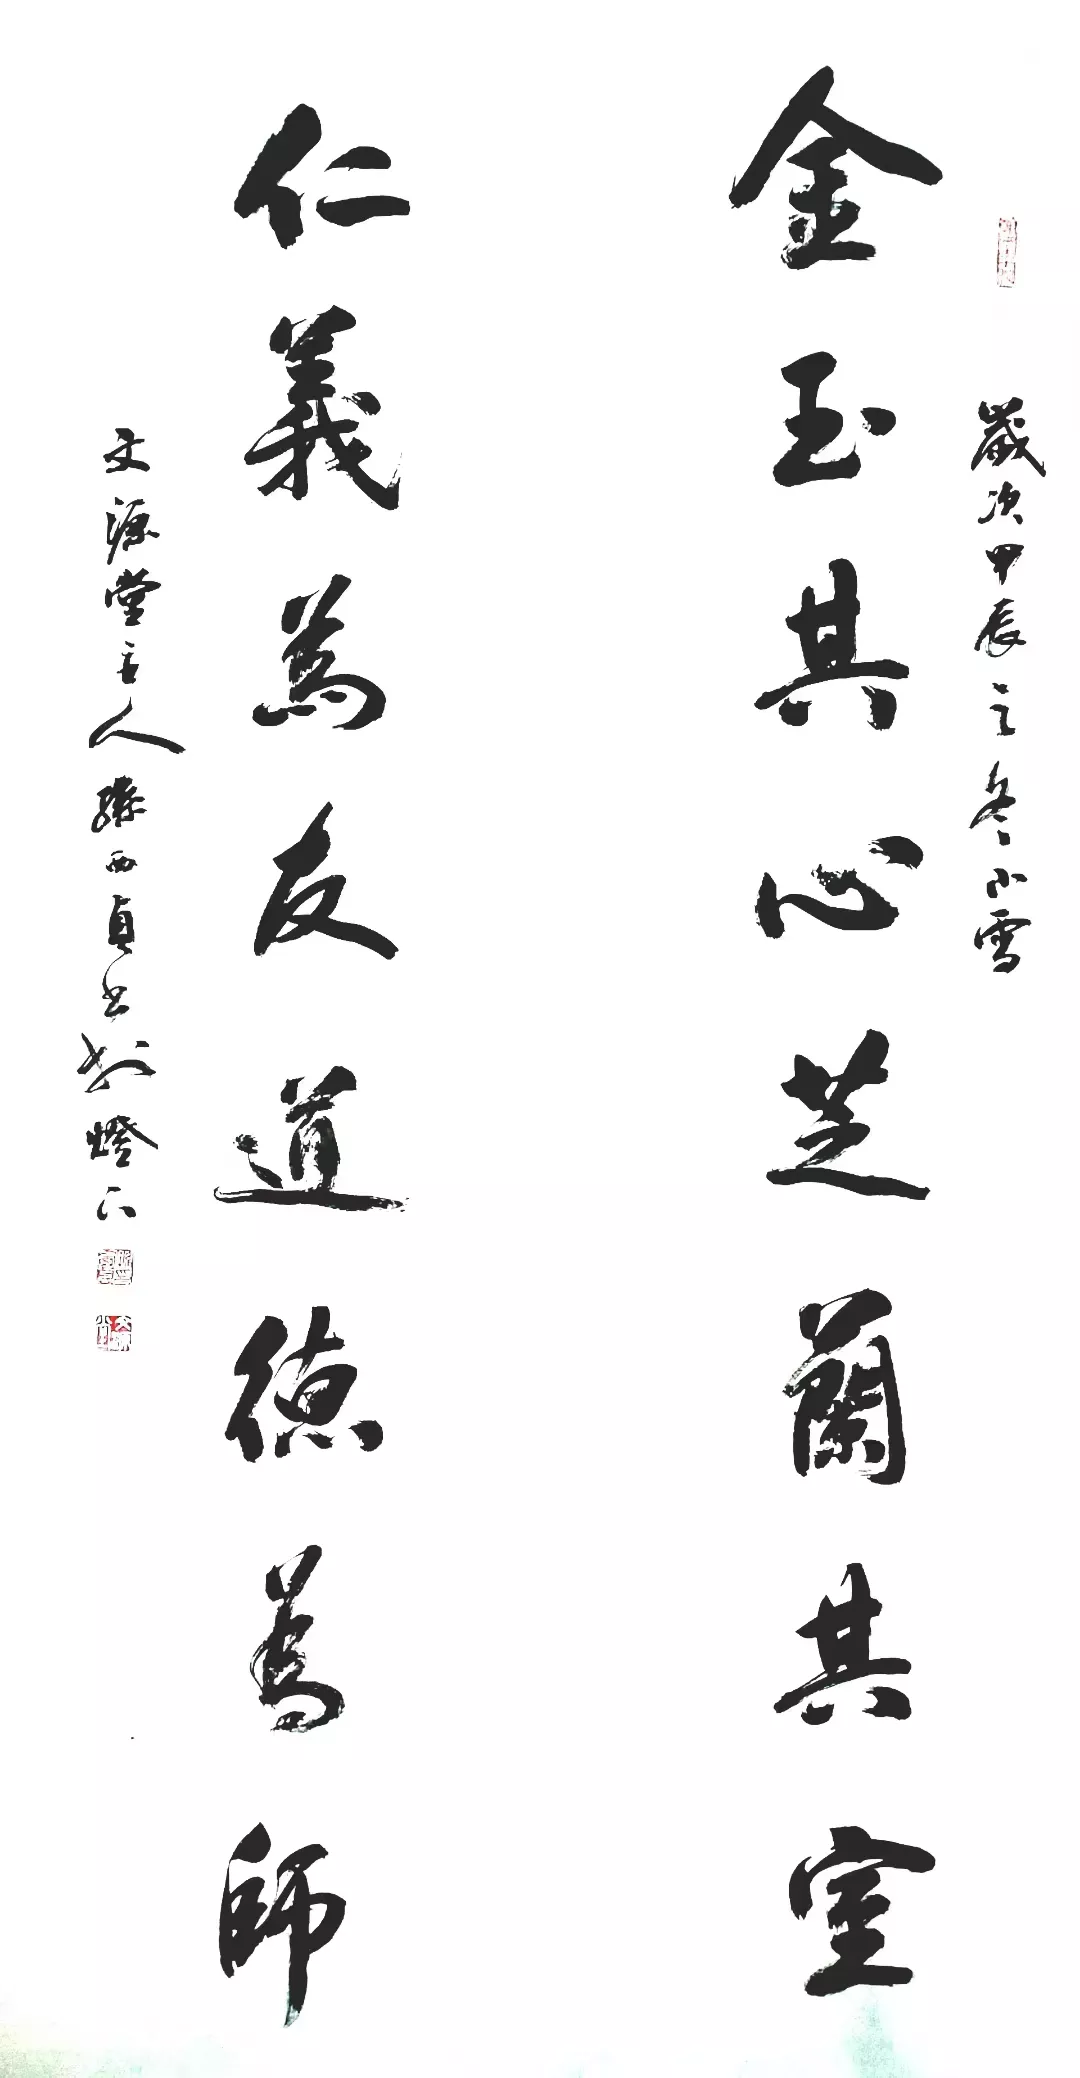 歲次甲辰之冬小雪
金玉其心芝蘭其室
仁義為友道德為師
文源堂主人孫西貞書於燈下